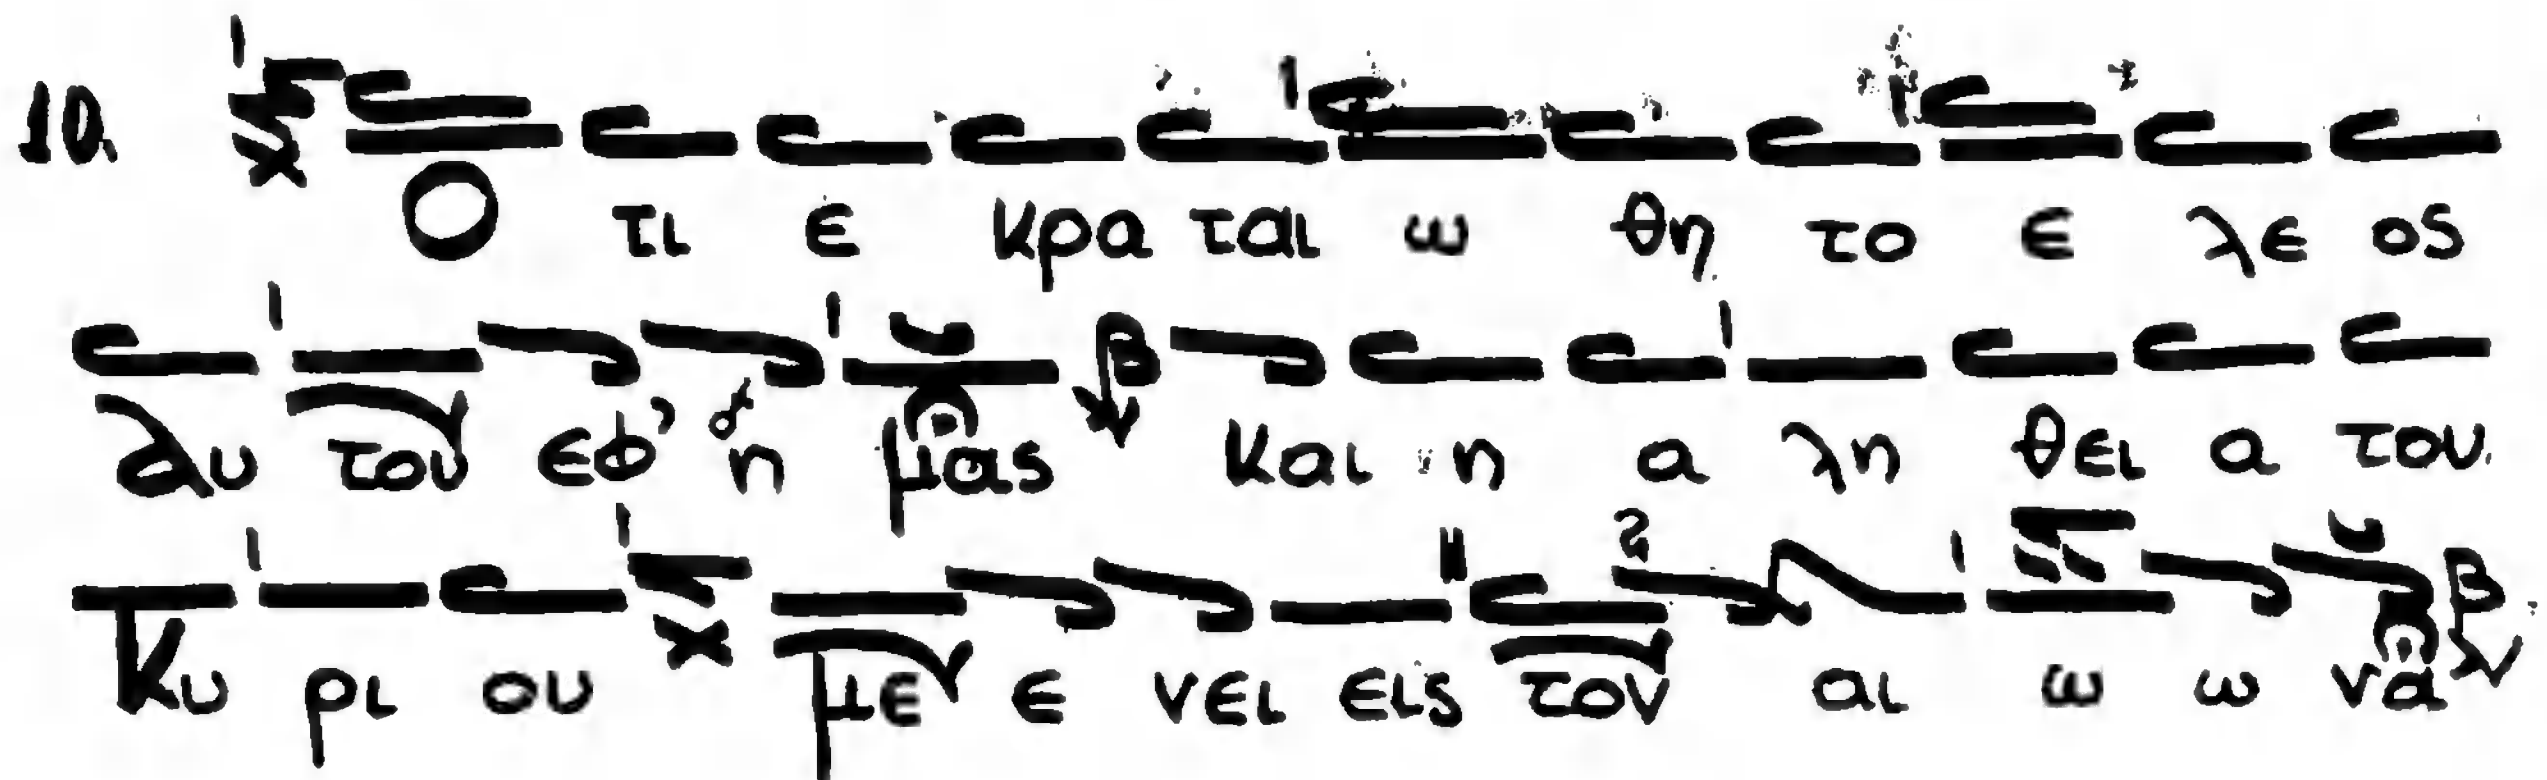 10. Ο τι ε κρα ται ω θη το ε λε ος
αυ του εφ' η μας β και η α λη θει α του
Κυ ρι ου με ε νει εις τον αι ω ω να β